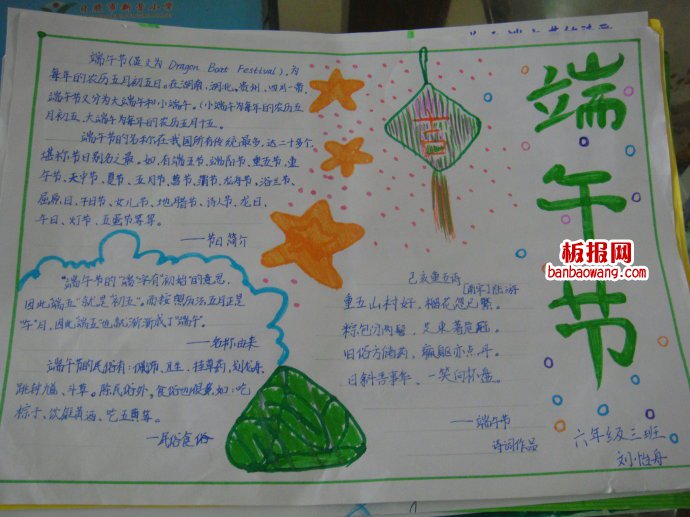 端午节(英文为 Dragon Boat Festival),为
每年的农历五月初五日。在湖南,湖北,贵州,四川一带,
端午节又分为大端午和小端午。(小端午为每年的农历五
月初五、大端午为每年的农历五月十五。
端午节的名称在我国所有传统最多,达二十多个,
堪称节日别名之最。如,有端五节、端阳节、重五节、重
午节、天中节、夏节、五月节、菖节、蒲节、龙舟节、浴兰节、
屈原日、午日节、女儿节、地腊节、诗人节、龙日、
午日、灯节、五蛋节等等。
——节日简介
"端午节"的"端"字有"初始"的意思,
因此"端五"就是"初五"。而按照历法五月正是
"午"月,因此"端五"也就渐渐成了"端午"。
——名称由来
端午节的民俗有:佩饰、卫生、挂草药、划龙舟、
斗草。除民俗外,食俗也很兼,如:吃
粽子、饮雄黄酒、吃五黄等。
——民俗食俗
己亥重五诗
[南宋]陆游
重五山村好,榴花忽已繁。
粽包分两髻,艾束著危冠。
旧俗方储药,羸躯亦点丹。
日斜吾事毕,一笑向杯盘。
——端午节
诗词作品
端午节
六年级三班
刘怡舟
板报网
banbaowang.com